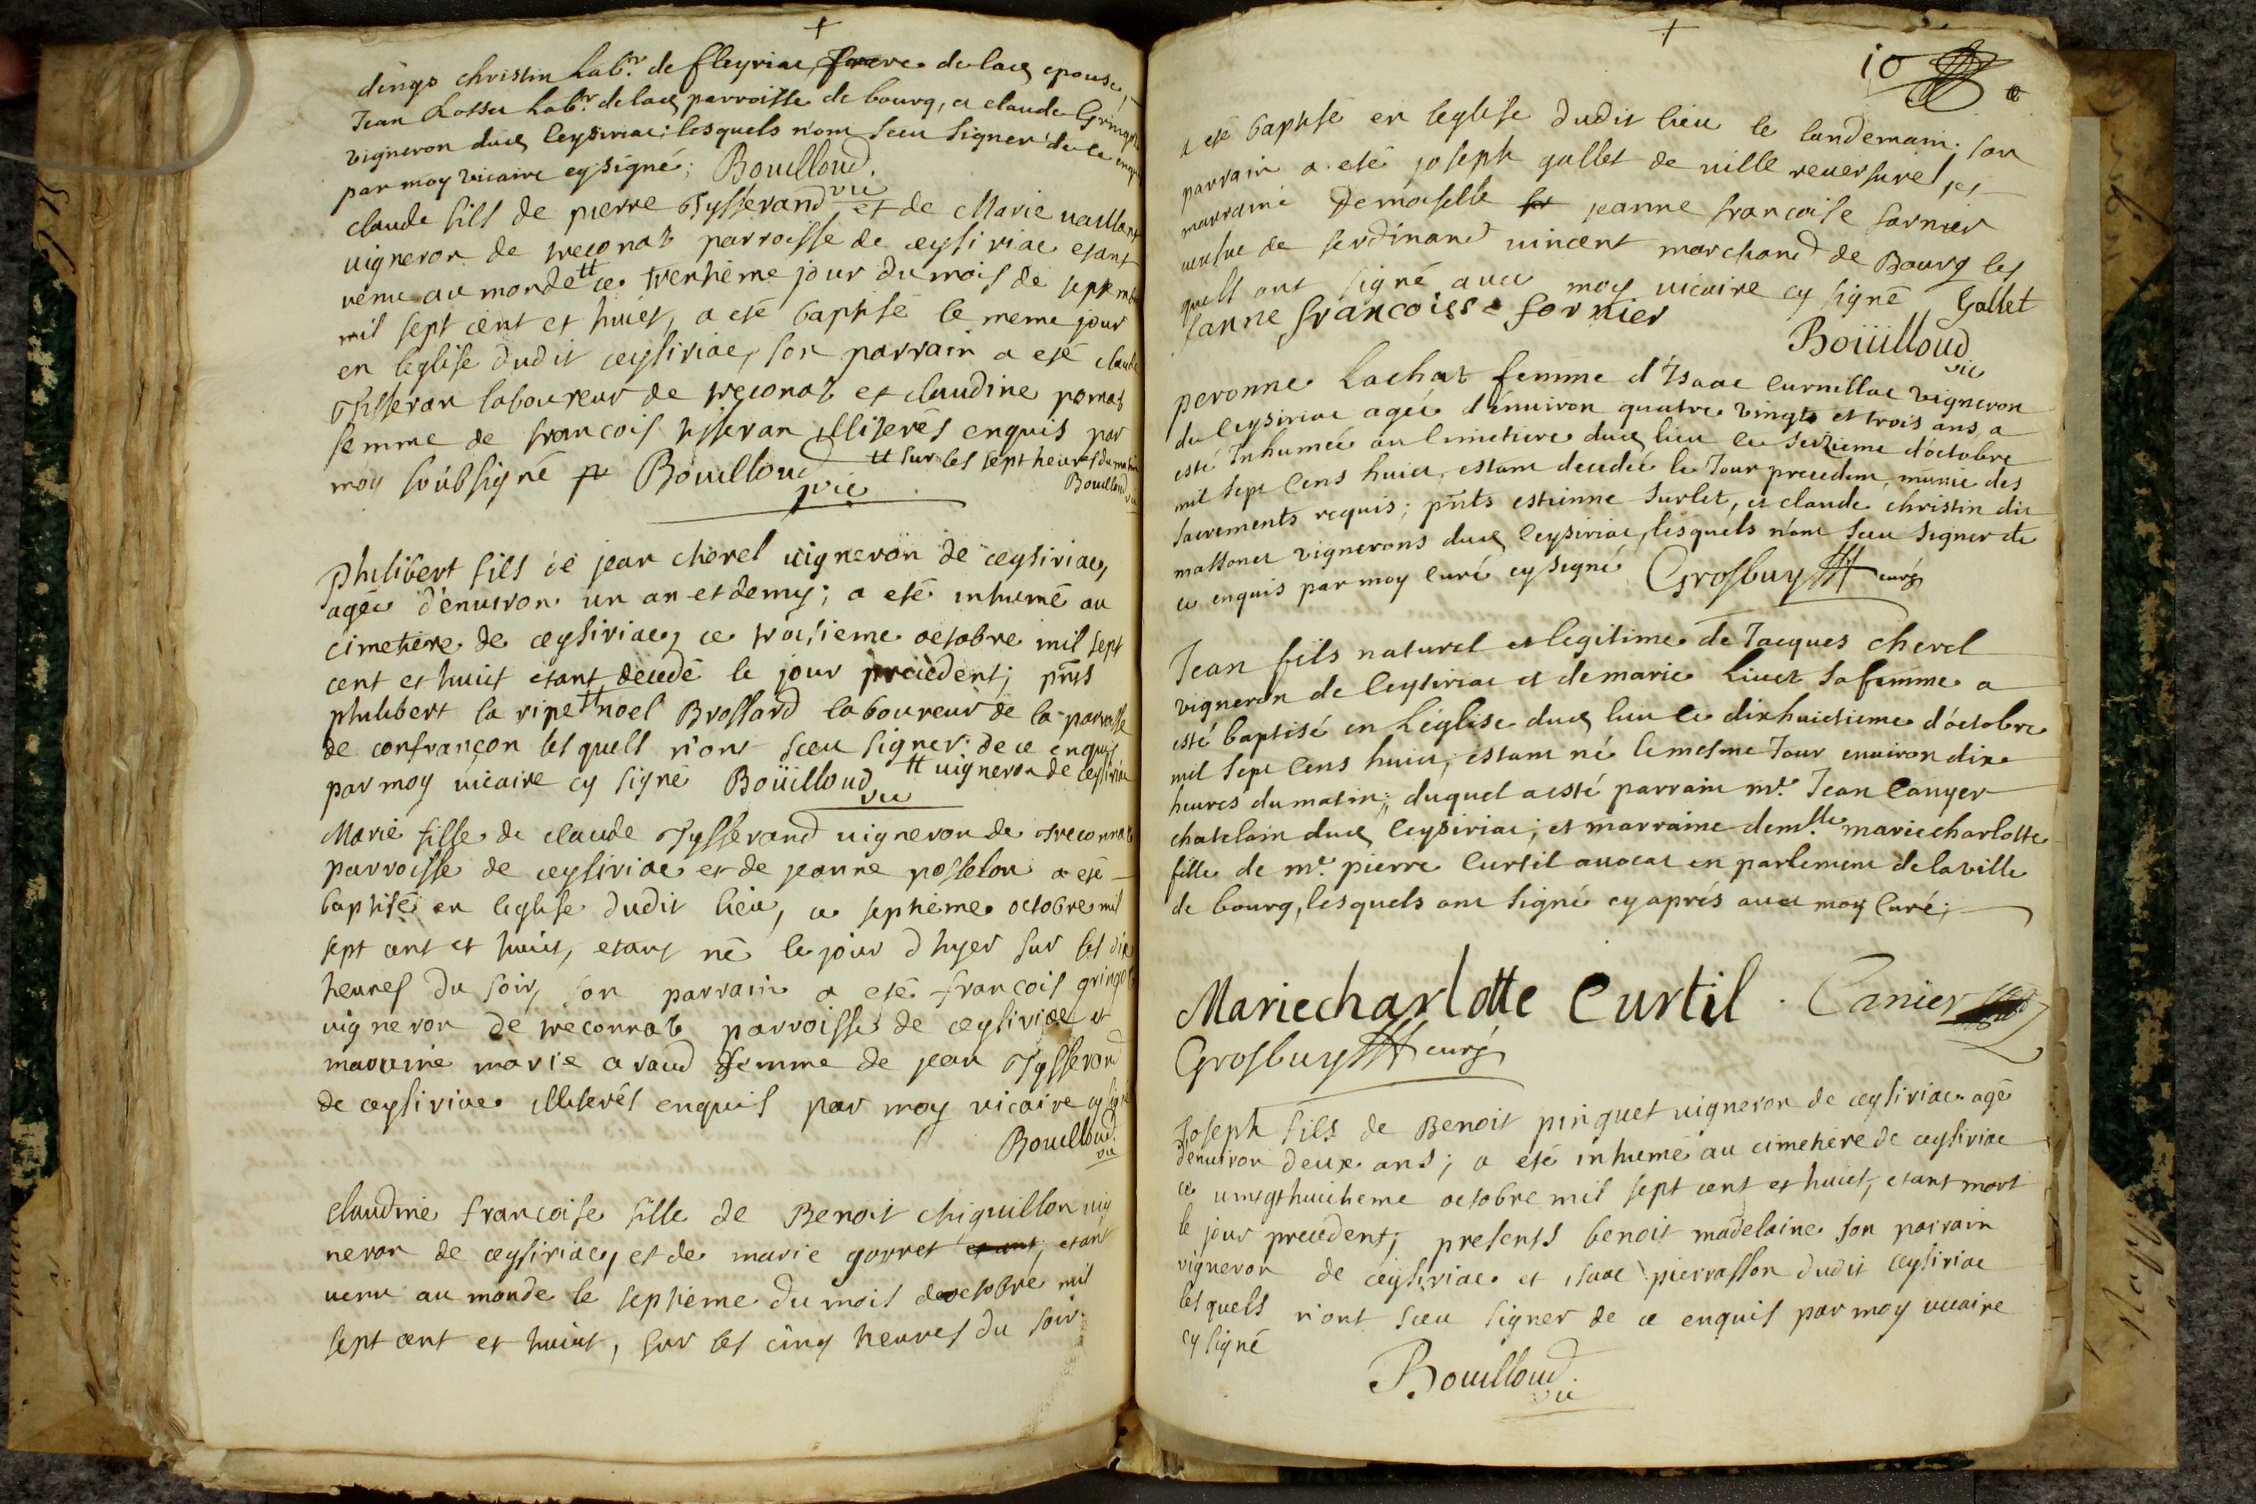 christin Lab.r de fleyriac, frere de lad epouse,
Jean Lab.r de lad parroisse de bourg, et claude
vigneron dud Ceysiriac; lesquels n'ont sceu signer de ce
par moy vicaire cy signé; Bouilloud.
vic
claude fils de pierre Tysserand et de Marie vaillant
vigneron de treconnas parroisse de ceysiriac etant
venu au monde # ce trentième jour du mois de septembre
mil sept cent et huict, a eté baptisé le meme jour
en leglise dudit ceysiriac, son parrain a eté claude
Tisseran laboureur de treconas et claudine
femme de francois tisseran illiterés enquis par
moy soubsigné Bouilloud # sur les sept heures du matin
vic Bouilloud vic
Philibert fils de jean cherel vigneron de ceysiriac,
agée d'enuiron un an et demy; a eté inhumé au
cimetiere de ceysiriac, ce troisieme octobre mil sept
cent et huict etant decedé le jour precedent; pnts
philibert la ripe # noel Brossard laboureur de la parroisse
de confrançon lesquels n'ont sceu signer de ce enquis
par moy vicaire cy signé Boüilloud # vigneron de ceysiriac
vic
Marie fille de claude Tysserand vigneron de treconnas
parroisse de ceysiriac et de jeanne posselon a eté
baptisé en leglise dudit lieu, ce septième octobre mil
sept cent et huict, etant né le jour d hyer sur les dix
heures du soir, son parrain a eté francois
vigneron de treconnas parroisse de ceysiriac et
maraine marie araud femme de jean Tysserand
de ceysiriac illiterés enquis par moy vicaire cy signé
Bouilloud
vic
claudine francoise fille de Benoit chiquillon vig
neron de ceysiriac, et de marie gorret etant, etant
venu au monde le septième du mois d octobre mil
sept cent et huict, sur les cinq heures du soir
10
a eté baptisé en leglise dudit lieu le landemain. son
parrain a eté joseph gallet de ville reuersure, et
marraine Demoiselle jeanne francoise fornier
veufue de ferdinand vincent marchand de Bourg les
quels ont signé auec moy vicaire cy signé Gallet
Janne francoisse fornier
Boüilloud
vic
peronne Lachat femme d'Isaac Curnillac vigneron
du Ceysiriac agée d'enuiron quatre vingts et trois ans, a
esté Inhumée au Cimetiere dud lieu ce seizieme d'octobre
mil sept Cens huict, estant decedée le Jour precedent, munie des
sacrements requis; pnts estienne surlet, et claude christin dit
massonet vignerons dud Ceysiriac, lesquels n'ont sceu signer de
ce enquis par moy Curé cy signé Grosbuy curé
Jean fils naturel et legitime de Jacques cherel
vigneron de Ceysiriac et de marie Liuet sa femme a
esté baptisé en L'église dud lieu ce dixhuictieme d'octobre
mil sept Cens huict, estant né le mesme Jour enuiron dix
heures du matin; duquel a esté parrain mr. Jean Canyer
chatelain dud Ceysiriac; et marraine demlle marie charlotte
fille de mr. pierre Curtil auocat en parlement de la ville
de bourg, lesquels ont signé cy aprés auec moy Curé;
Marie charlotte Curtil. Canier
Grosbuy curé
Joseph fils de Benoit pinguet vigneron de ceysiriac agé
d'enuiron deux ans; a eté inhumé au cimetiere de ceysiriac
ce vingthuictieme octobre mil sept cent et huict, etant mort
le jour precedent; presents benoit madelaine son parrain
vigneron de ceysiriac et isaac pierrasson dudit ceysiriac
lesquels n'ont sceu signer de ce enquis par moy vicaire
cy signé
Bouilloud.
vic